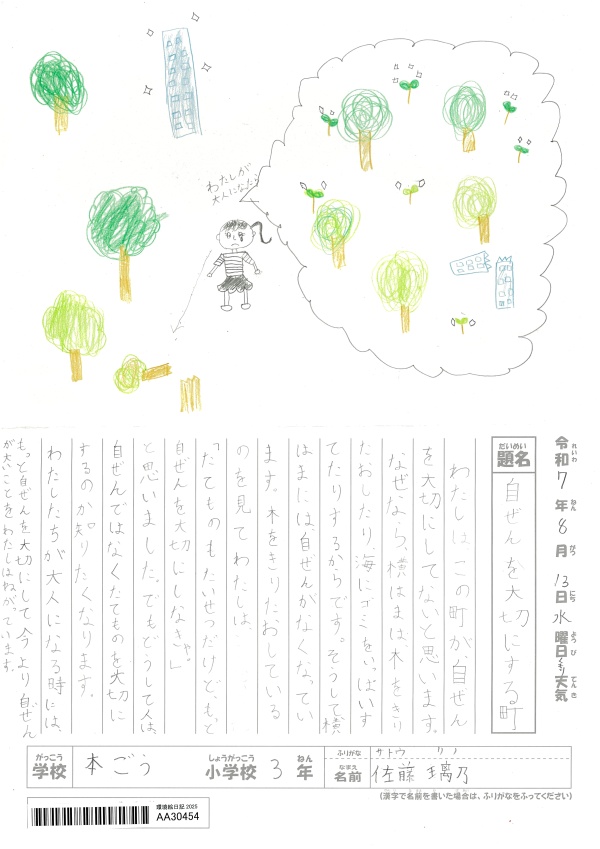 わたしが
大人になたら
令和7年8月13日水曜日くもり天気
れいわ ねん がつ にち ようび てんき
だいめい
題名
自ぜんを大切にする町
わたしは、この町が、自ぜん
を大切にしてないと思います。
なぜなら、横はまは、木をきり
たおしたり、海にゴミをいっぱいす
てたりするからです。そうして横
はまには、自ぜんがなくなってい
ます。木をきりたおしている
のを見てわたしは、
「たてものもたいせつだけど、もっと
自ぜんを大切にしなきゃ。」
と思いました。でもどうして人は、
自ぜんではなくたてものを大切に
するのか。知りたくなります。
わたしたちが大人になる時には、
もっと自ぜんを大切にして今より自ぜん
がっこう
学校
本ごう
しょうがっこう
小学校
3
ねん
年
ふりがな
サトウ リノ
なまえ
名前
佐藤 璃乃
(漢字で名前を書いた場合は、ふりがなをふってください)
環境絵日記2025
AA30454